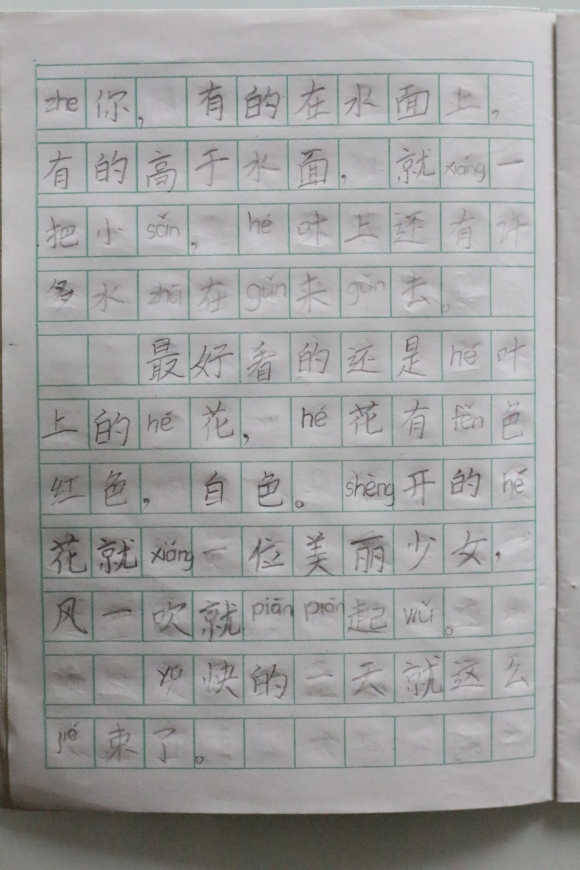 zhe你，有的在水面上，
有的高于水面，就xiàng一
把小sǎn，hé叶上还有许
多水zhū在gǔn来gǔn去。
最好看的还是hé叶
上的hé花，hé花有fěn色
红色，白色。shèng开的hé
花就xiàng一位美丽少女，
风一吹就piān piān起wǔ。
yú快的一天就这么
jié束了。